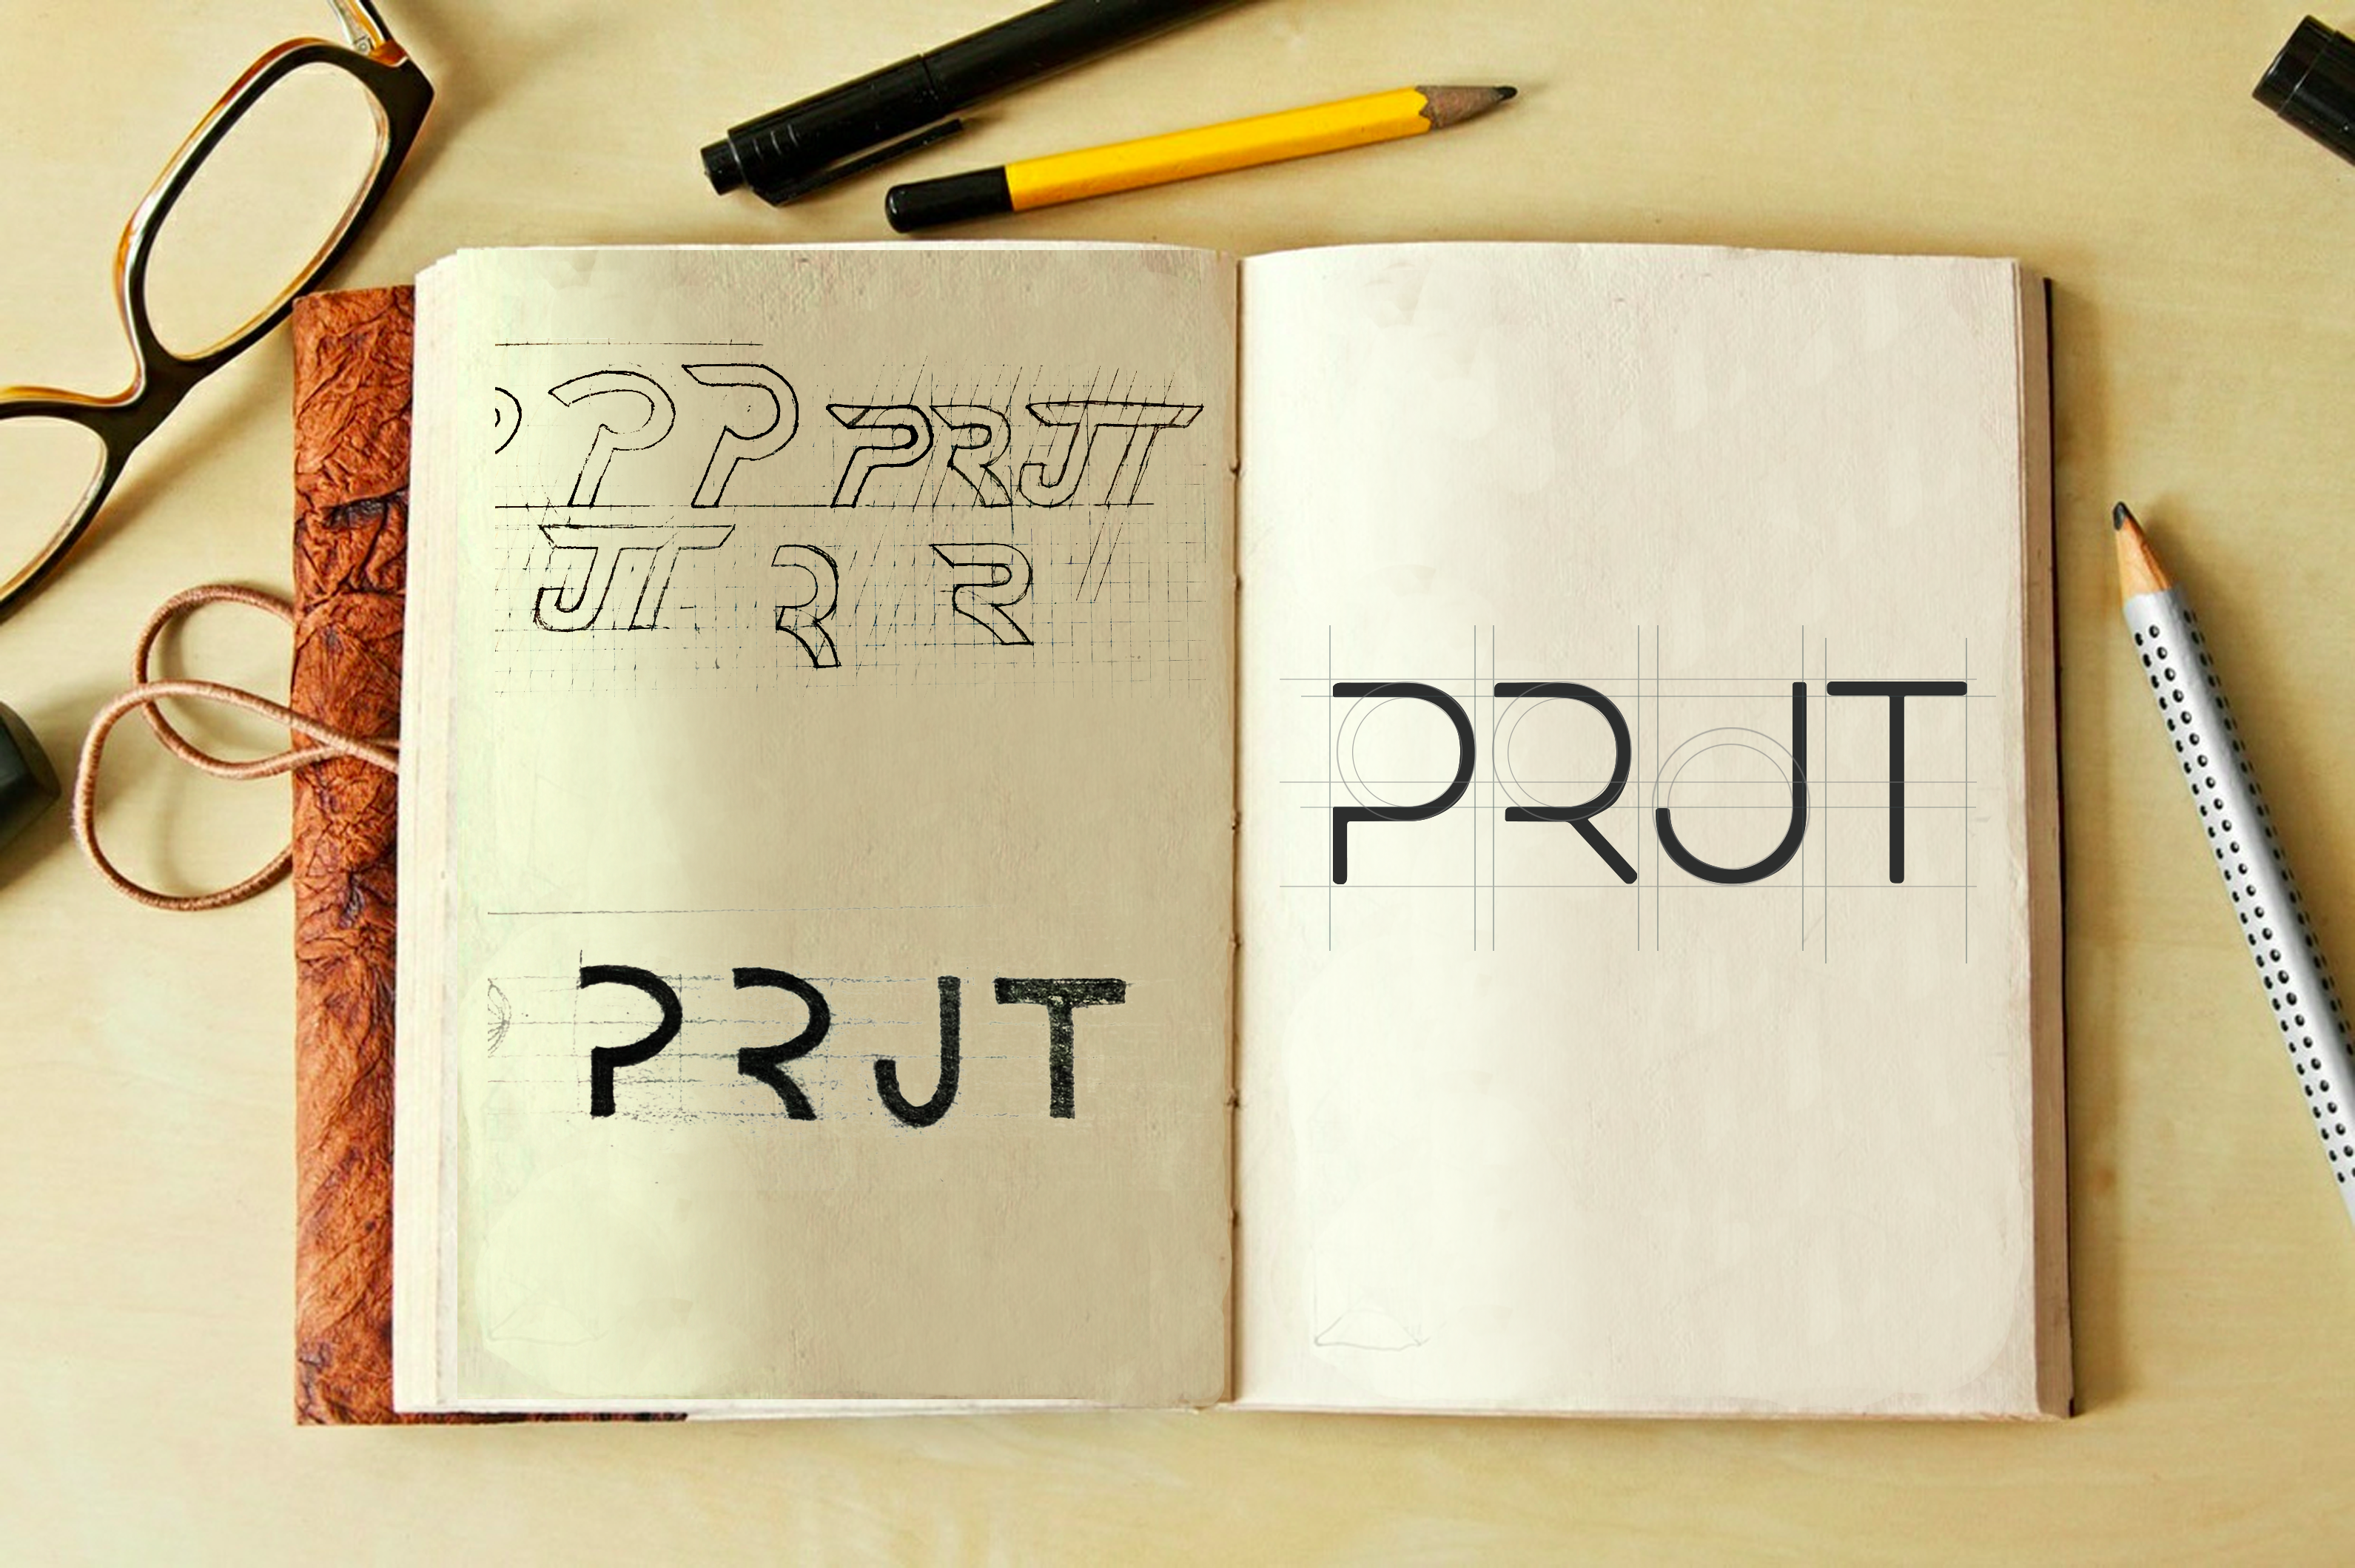 P P P PRJT
JT R R
PRJT
PRJT